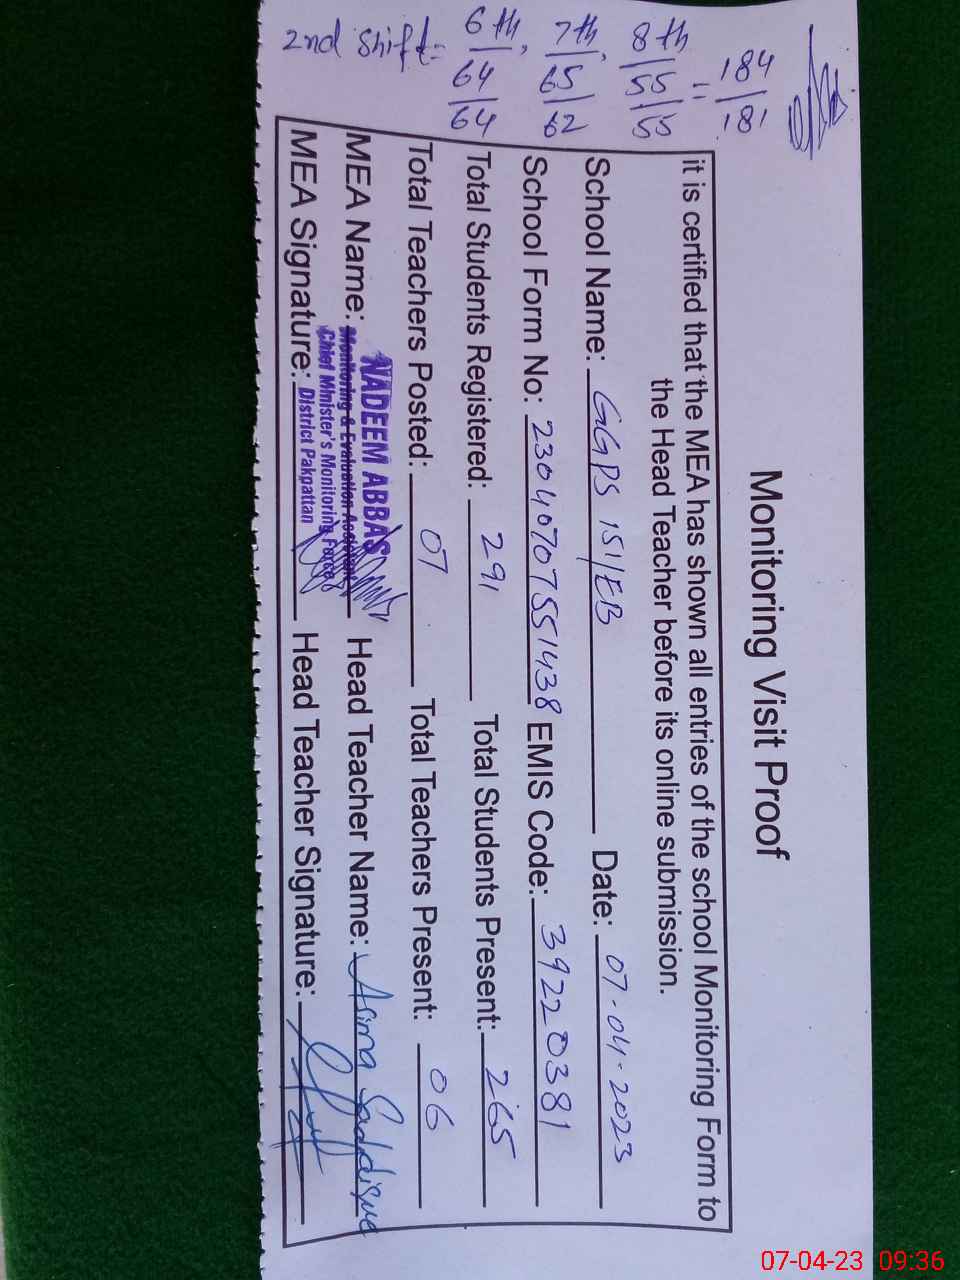 Monitoring Visit Proof
it is certified that the MEA has shown all entries of the school Monitoring Form to
the Head Teacher before its online submission.
School Name: GGPS 151/EB Date: 07-04-2023
School Form No: 23040707551438 EMIS Code: 39220381
Total Students Registered: 291 Total Students Present: 265
Total Teachers Posted: 07 Total Teachers Present: 06
MEA Name: NADEEM ABBAS Head Teacher Name: Asima Saddique
Monitoring & Evaluation Assistant
Chief Minister's Monitoring Force
MEA Signature: District Pakpattan Head Teacher Signature:
2nd shift:
6th, 7th, 8th
64 65 55 = 184
64 62 55 181
07-04-23 09:36